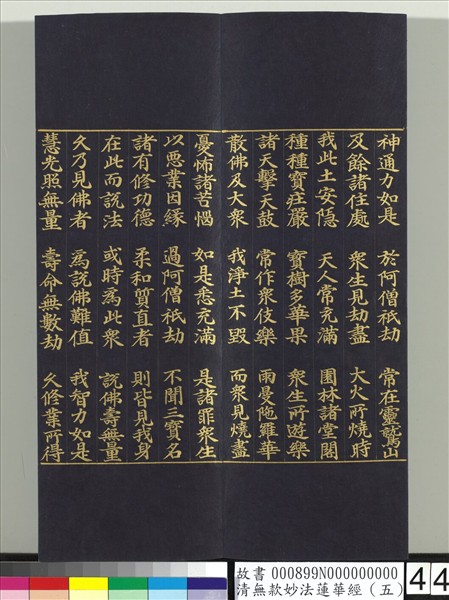 神通力如是　於阿僧祇劫　常在靈鷲山
及餘諸住處　衆生見劫盡　大火所燒時
我此土安隱　天人常充滿　園林諸堂閣
種種寶莊嚴　寶樹多華果　衆生所遊樂
諸天擊天鼓　常作衆伎樂　雨曼陁羅華
散佛及大衆　我淨土不毀　而衆見燒盡
憂怖諸苦惱　如是悉充滿　是諸罪衆生
以惡業因緣　過阿僧祇劫　不聞三寶名
諸有修功德　柔和質直者　則皆見我身
在此而說法　或時為此衆　說佛壽無量
久乃見佛者　為說佛難值　我智力如是
慧光照無量　壽命無數劫　久修業所得
故書 000899N000000000
清無款妙法蓮華經（五）
44